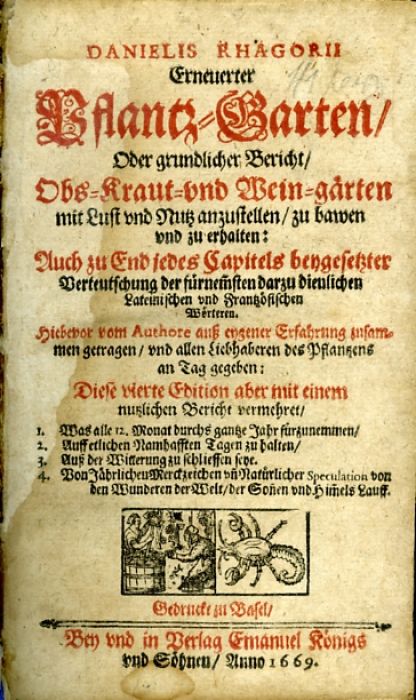 DANIELIS RHAGORII
Erneuerter
Pflantz-Garten/
Oder grundlicher Bericht/
Obs-Kraut-vnd Wein-gärten
mit Lust vnd Nutz anzustellen/zu bawen
vnd zu erhalten:
Auch zu End jedes Capitels beygesetzter
Verteutschung der fürnem̃sten darzu dienlichen
Lateinischen vnd Frantzösischen
Wörteren.
Hiebevor vom Authore auß eygener Erfahrung zusam-
men getragen/vnd allen Liebhaberen des Pflantzens
an Tag gegeben:
Diese vierte Edition aber mit einem
nutzlichen Bericht vermehret/
1. Was alle 12. Monat durchs gantze Jahr fürzunemmen/
2. Auff etlichen Namhafften Tagen zu halten/
3. Auß der Witterung zu schliessen seye.
4. Von Jährlichen Merckzeichen vn̄ Natürlicher Speculation von
den Wunderen der Welt/der Son̄en vnd Him̄els Lauff.
Gedruckt zu Basel/
Bey vnd in Verlag Emanuel Königs
vnd Söhnen/Anno 1669.